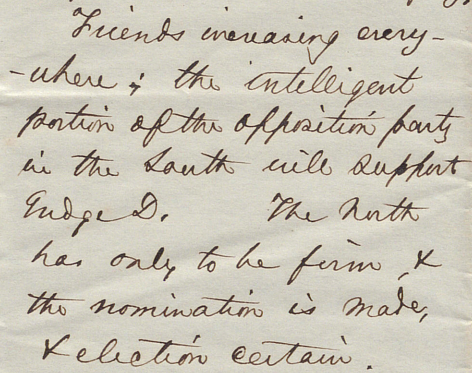 Friends increasing every-
-where; the intelligent
portion of the opposition party
in the South will support
Judge D. The North
has only to be firm, &
the nomination is made,
& election certain.